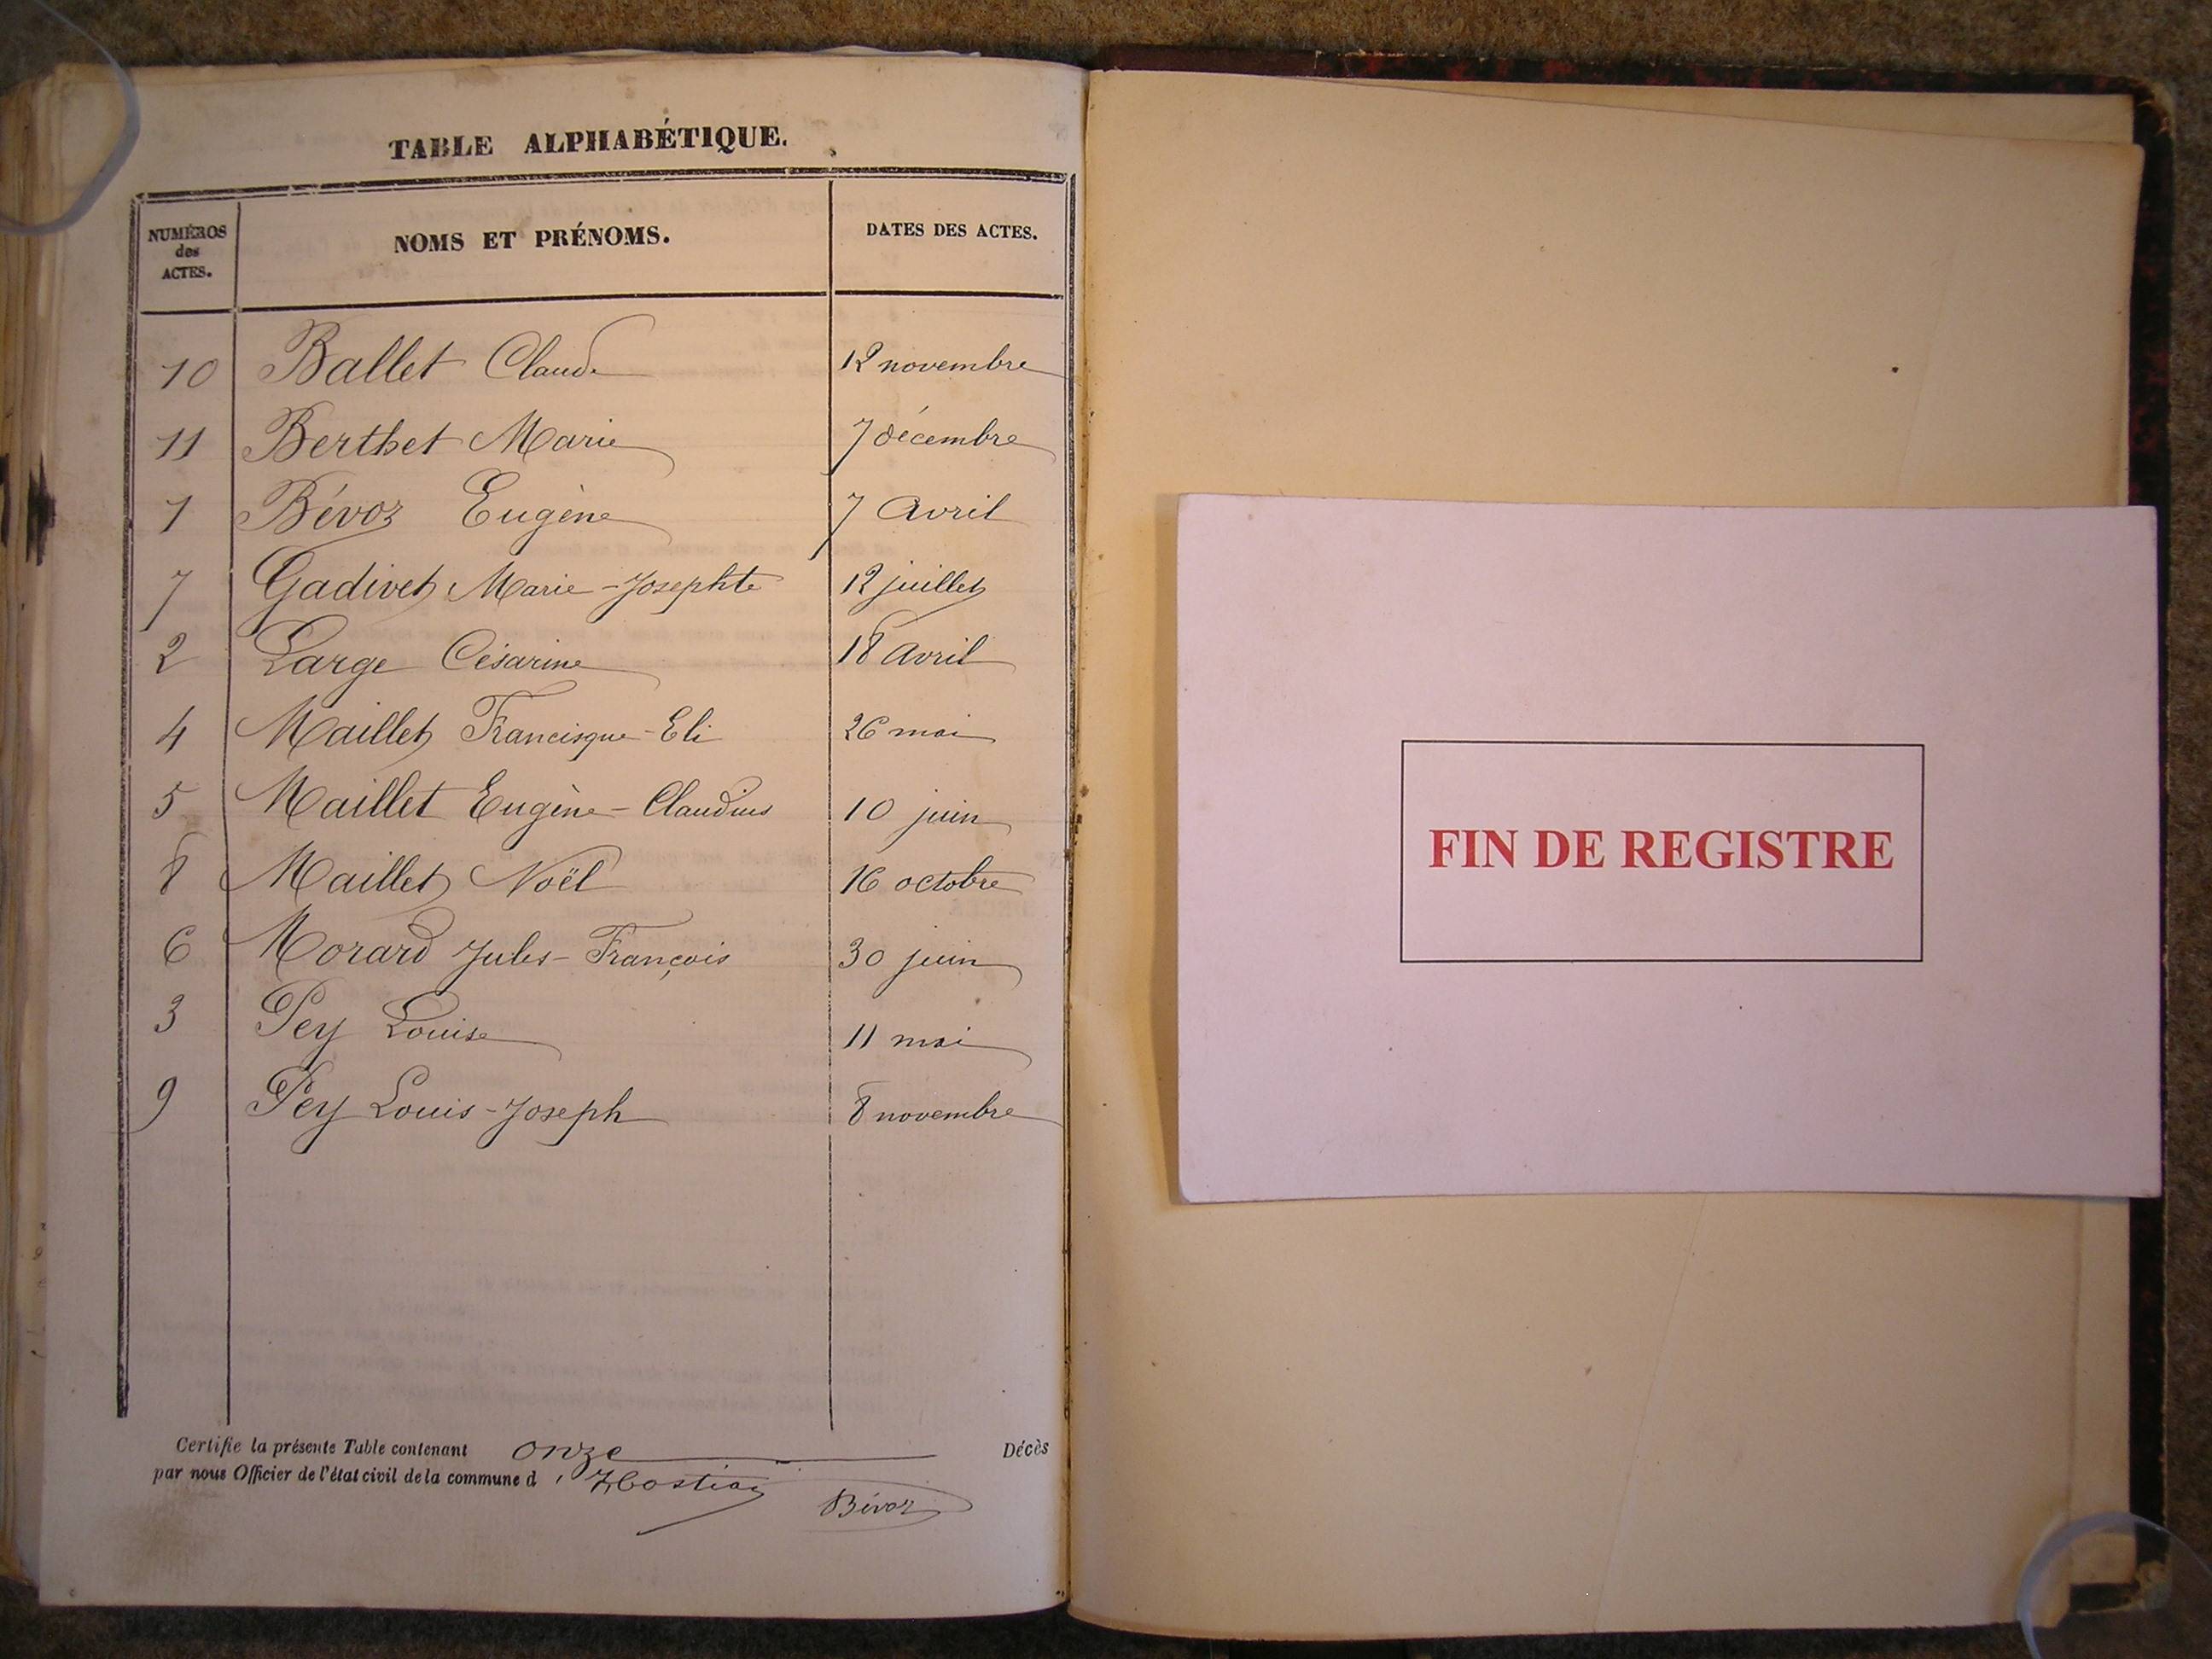 TABLE ALPHABÉTIQUE.
NUMÉROS des ACTES. NOMS ET PRÉNOMS. DATES DES ACTES.
10 Ballet Claude 12 novembre
11 Berthet Marie 7 décembre
1 Bévoz Eugène 7 Avril
7 Gadivet Marie-Josephte 12 juillet
2 Large Césarine 18 Avril
4 Maillet Francisque-Eli 26 mai
5 Maillet Eugène-Claudius 10 juin
8 Maillet Noël 16 octobre
6 Morard Jules-François 30 juin
3 Pey Louise 11 mai
9 Pey Louis-Joseph 8 novembre
Certifie la présente Table contenant onze Décès
par nous Officier de l'état civil de la commune d'Hostiaz
Bévoz
FIN DE REGISTRE